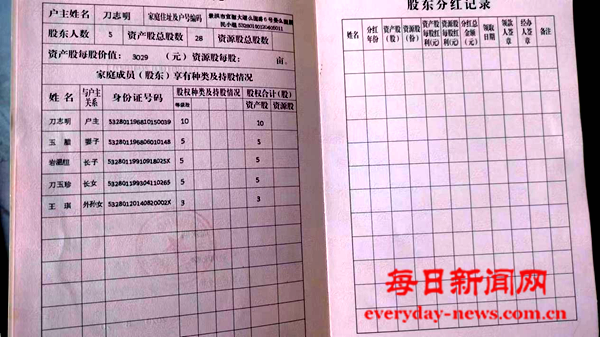 户主姓名 刀志明 家庭住址及户号编码
股东人数 5 资产股总股数 28 资源股总股数
资产股每股价值: 3029 (元) 资源股每股: 亩。
家庭成员(股东)享有种类及持股情况
姓 名 与户主关系 身份证号码 股权种类及持股情况 股权合计(股)
资产股 资源股
刀志明 户主 532801196810150039 10 10
玉 妻子 532801196806010148 5 5
长子 53280119910918025X 5 5
刀玉珍 长女 532801199304110265 5 5
王 琪 外孙女 53280120140820002X 3 3
股东分红记录
姓名 分红年份 资产股(股) 资源股(股) 资产股每股红利(元) 资源股每股红利(元) 分红总金额(元) 领取日期 领款人签章 经办人签章 备注
每日新闻网
everyday-news.com.cn